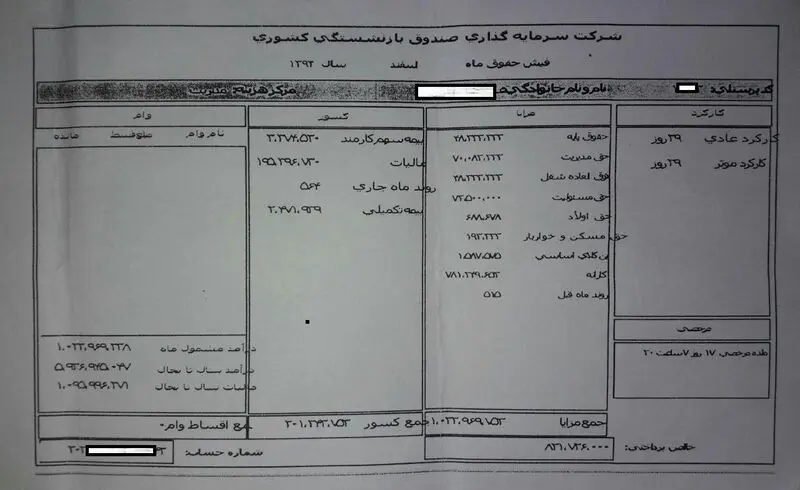 شرکت سرمایه گذاری صندوق بازنشستگی کشوری
فیش حقوق ماه اسفند سال ۱۳۹۴
کد پرسنلی: نام و نام خانوادگی: مرکز هزینه: مدیریت
کارکرد
کارکرد عادی ۲۹ روز
کارکرد موثر ۲۹ روز
مرخصی
مانده مرخصی ۱۷ روز ۷ ساعت ۲۰
مزایا
حقوق پایه ۴۸,۳۳۳,۳۳۳
حق مدیریت ۷۰,۰۸۳,۳۳۳
فوق العاده شغل ۴۸,۳۳۳,۳۳۳
حق مسئولیت ۷۲,۵۰۰,۰۰۰
حق اولاد ۶۸۸,۶۷۸
حق مسکن و خواربار ۱۹۳,۳۳۳
بن کالای اساسی ۱,۵۸۷,۵۷۵
کارانه ۷۸۱,۲۴۹,۶۵۳
روند ماه قبل ۵۱۵
جمع مزایا ۱,۰۲۲,۹۶۹,۷۵۳
کسور
بیمه سهم کارمند ۳,۳۷۴,۵۳۰
مالیات ۱۹۵,۳۹۶,۷۳۰
روند ماه جاری ۵۶۴
بیمه تکمیلی ۲,۴۷۱,۹۲۹
جمع کسور ۲۰۱,۲۴۳,۷۵۳
وام
نام وام مبلغ قسط مانده
درآمد مشمول ماه ۱,۰۲۲,۹۶۹,۲۳۸
درآمد سال تا بحال ۵,۹۲۶,۹۴۵,۰۴۷
مالیات سال تا بحال ۱,۰۹۵,۹۹۶,۳۷۱
جمع اقساط وام ۰
خالص پرداختی: ۸۲۱,۷۲۶,۰۰۰
شماره حساب: